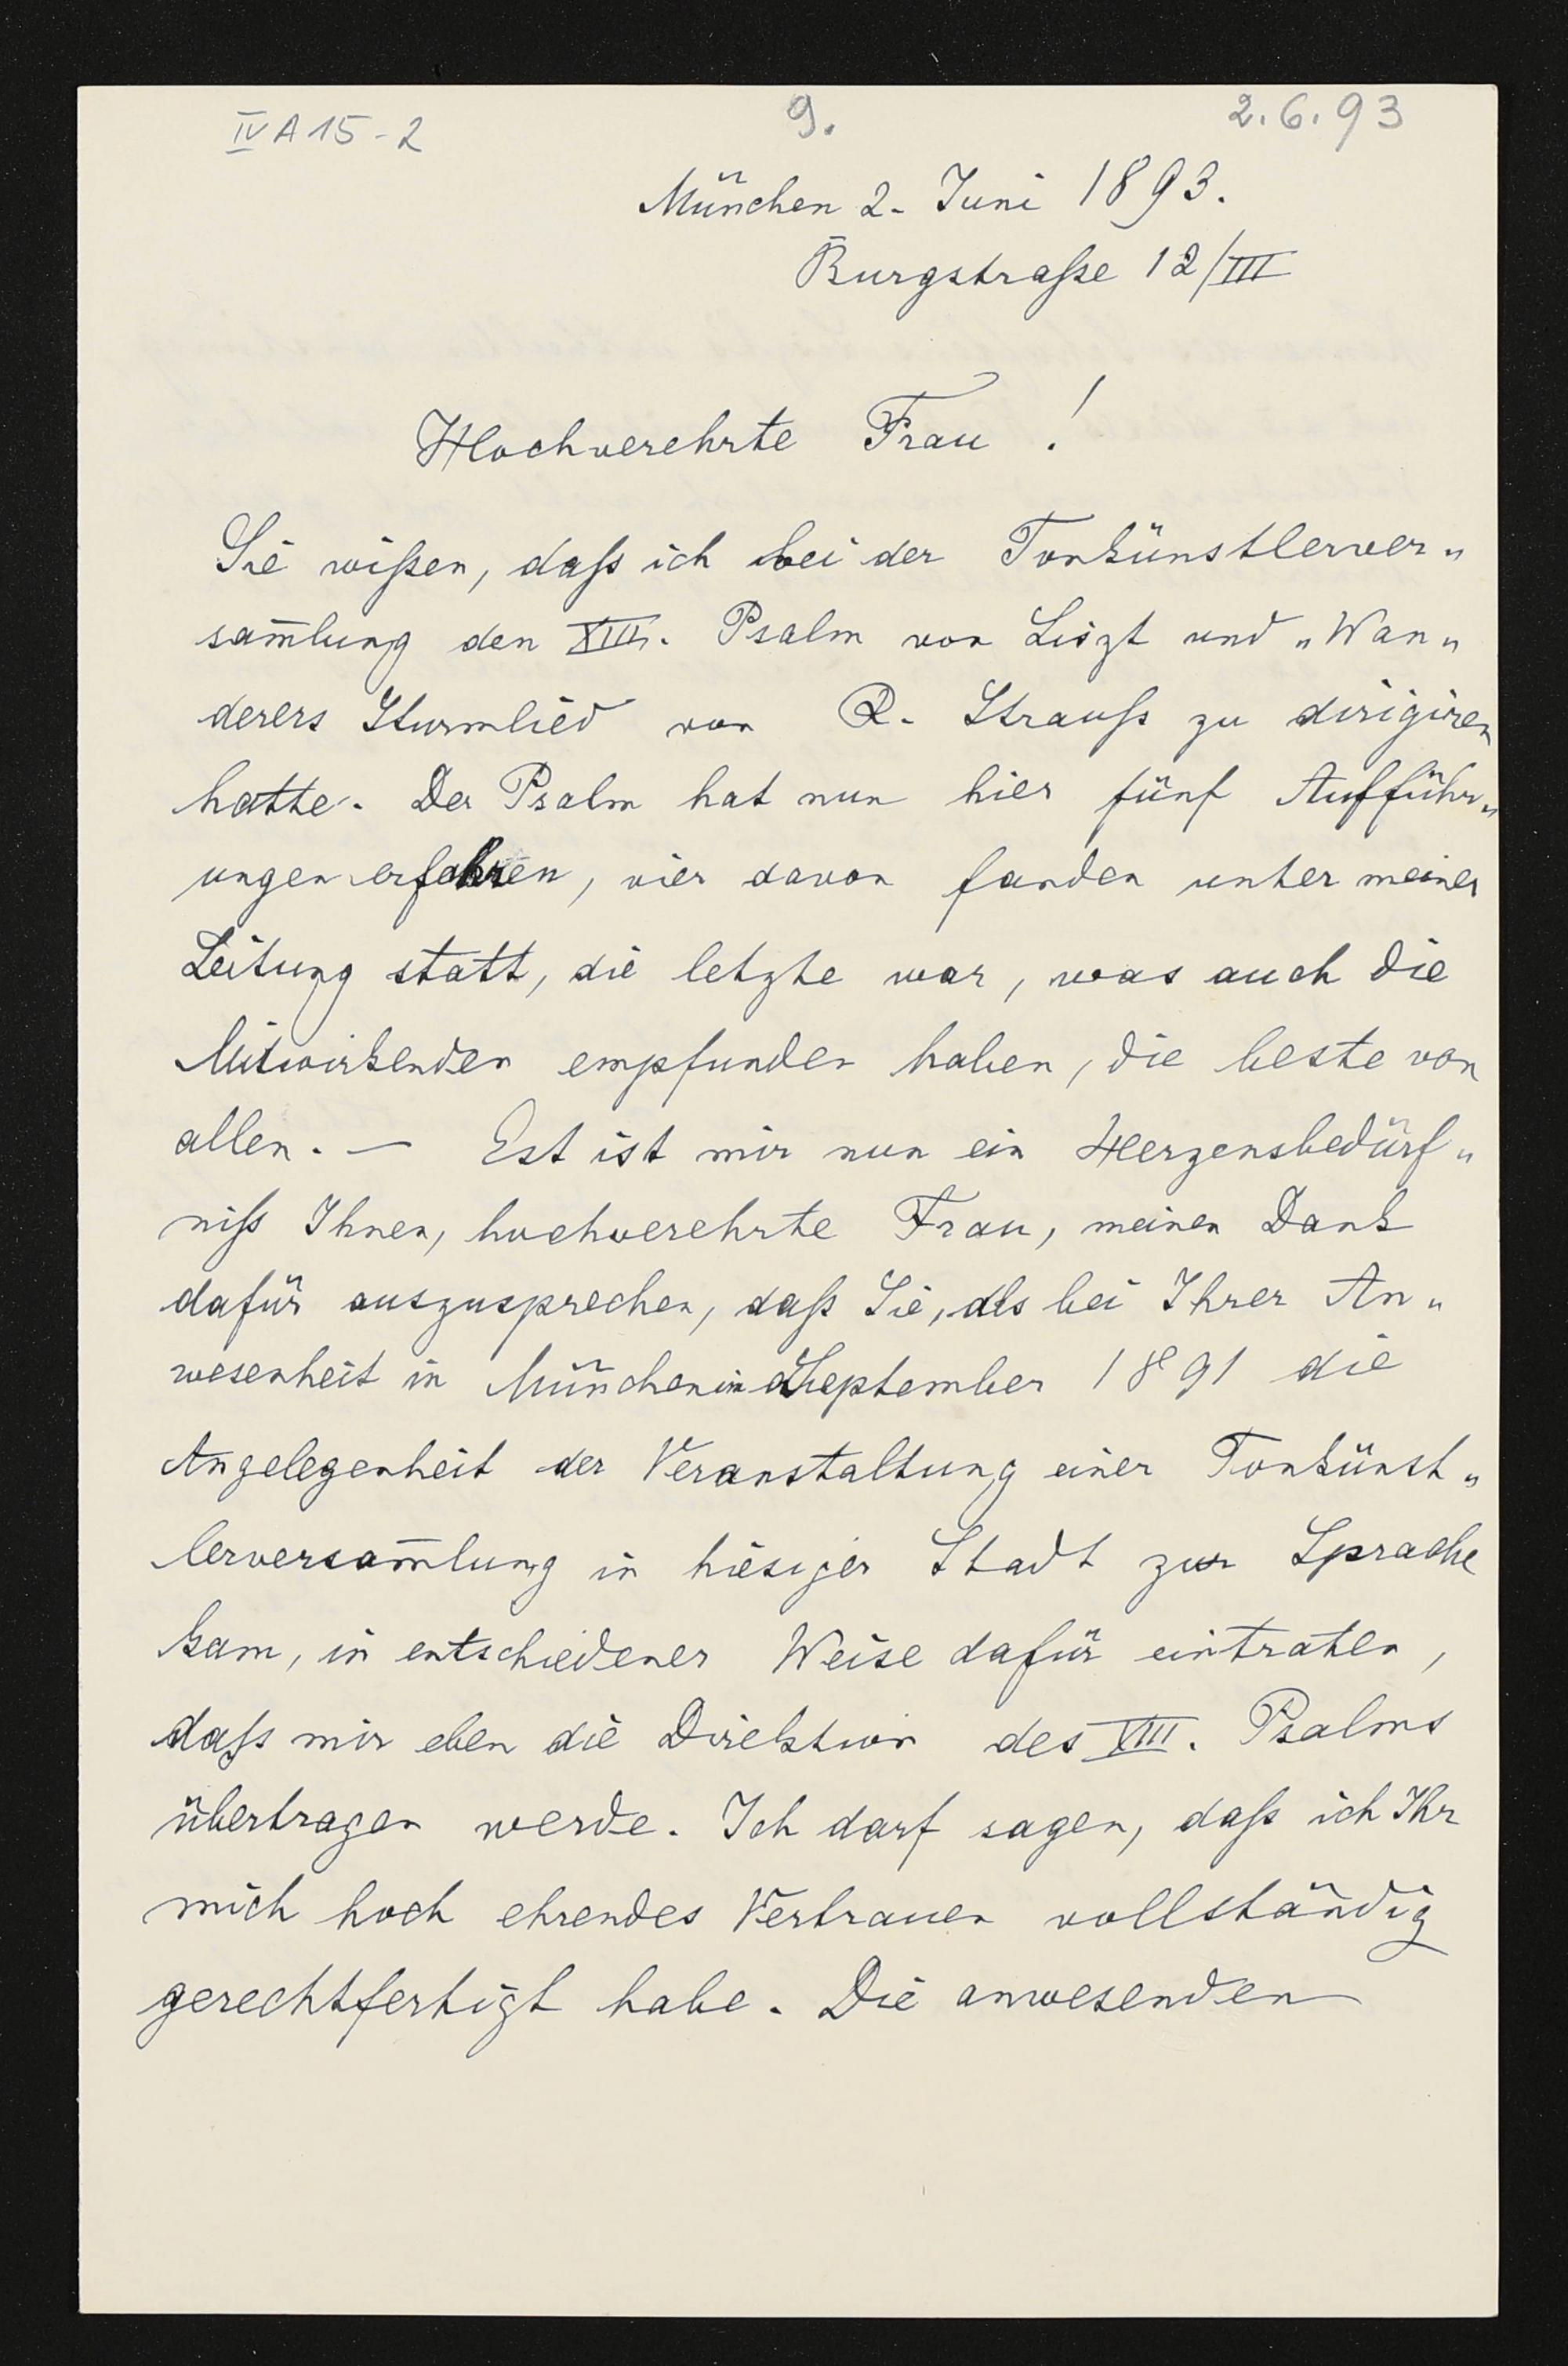 IV A 15-2
9.
2.6.93
München 2. Juni 1893.
Burgstraße 12/III
Hochverehrte Frau !
Sie wißen, daß ich bei der Tonkünstlerver„
sam̄lung den XIII. Psalm von Liszt und „Wan„
derers Sturmlied von R. Strauß zu dirigiren
hatte. Der Psalm hat nun hier fünf Aufführ„
ungen erfahren, vier davon fanden unter meiner
Leitung statt, die letzte war, was auch die
Mitwirkenden empfunden haben, die beste von
allen. — Est ist mir nun ein Herzensbedürf„
niß Ihnen, hochverehrte Frau, meinen Dank
dafür auszusprechen, daß Sie, als bei Ihrer An„
wesenheit in München im September 1891 die
Angelegenheit der Veranstaltung einer Tonkünst„
lerversam̄lung in hiesiger Stadt zur Sprache
kam, in entschiedener Weise dafür eintraten,
daß mir eben die Direktion des XIII. Psalms
übertragen werde. Ich darf sagen, daß ich Ihr
mich hoch ehrendes Vertrauen vollständig
gerechtfertigt habe. Die anwesenden